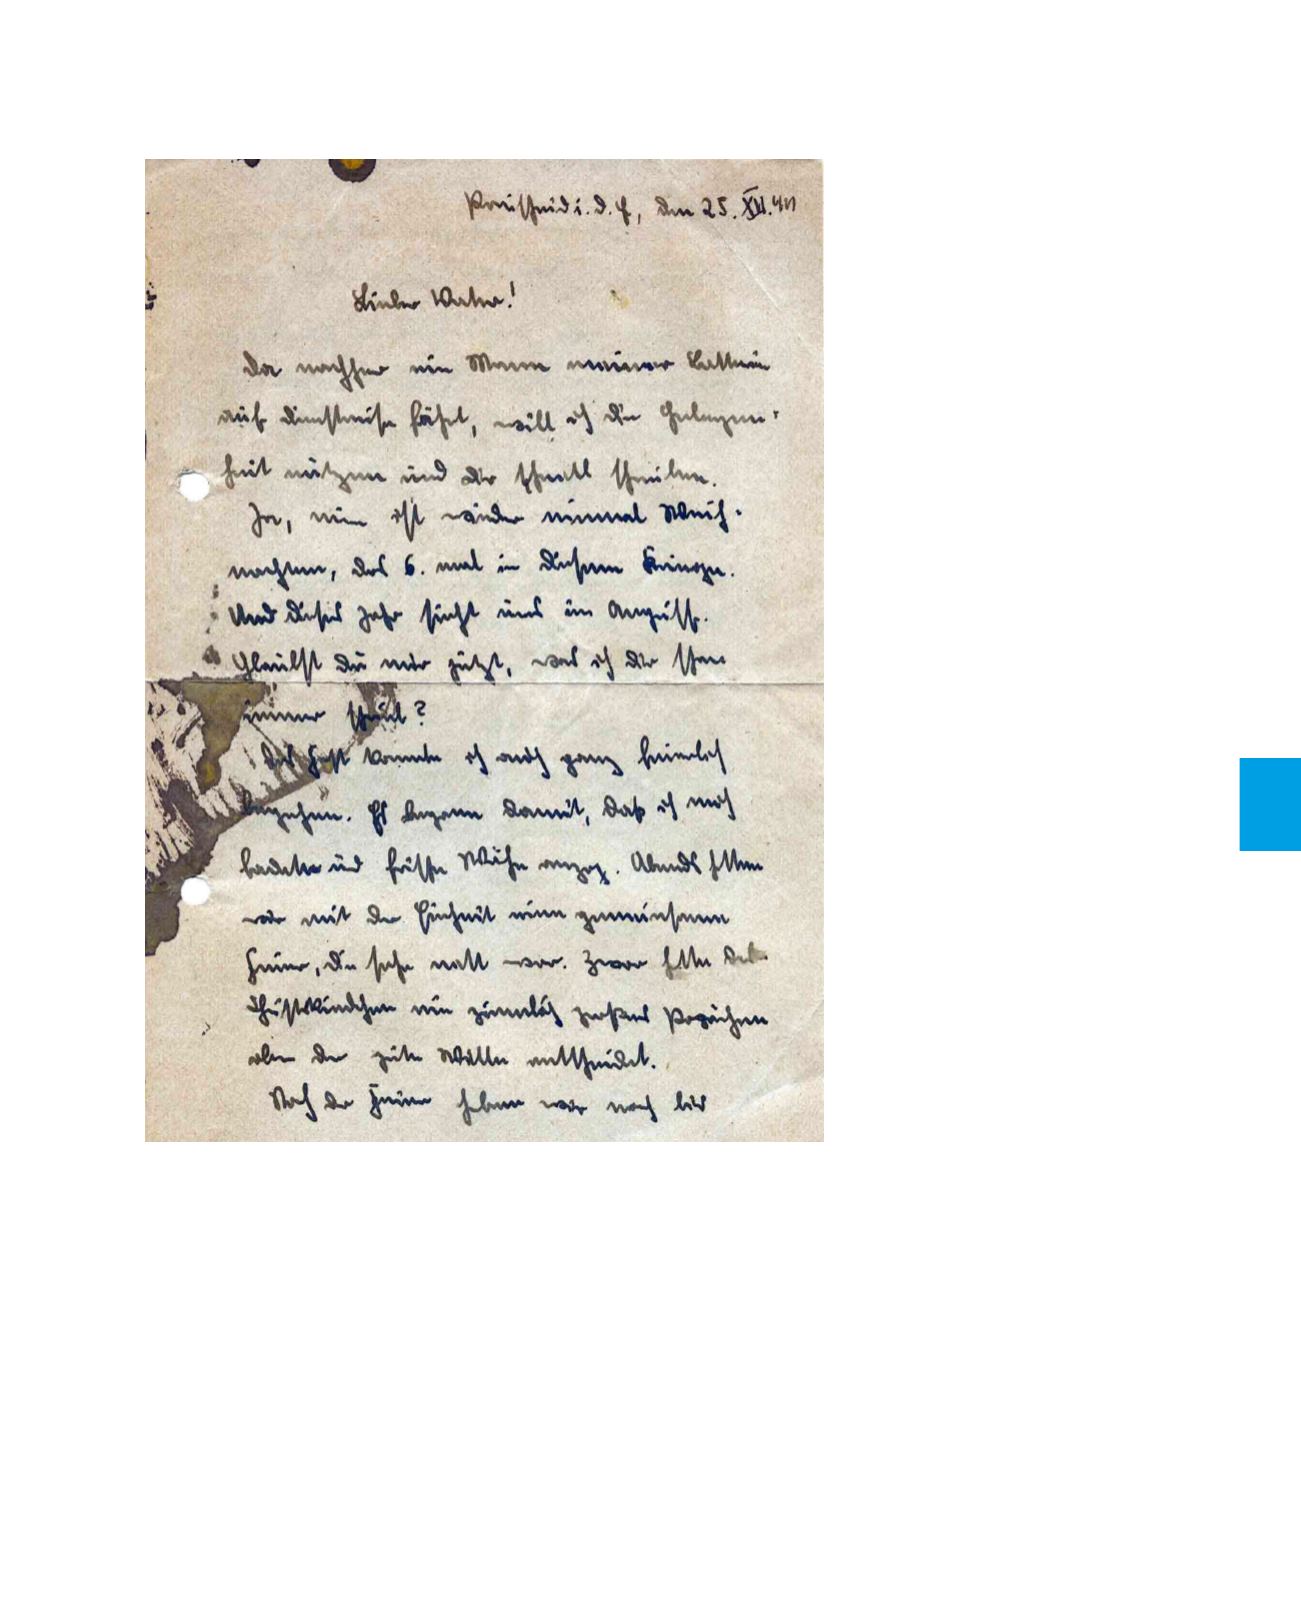 Preischeid i. d. E, den 25. XII. 44
Lieber Vater!
Da nachher ein Mann meiner Batterie
auf Dienstreise fährt, will ich die Gelegen-
heit nützen und dir schnell schreiben.
Ja, nun ist wieder einmal Weih-
nachten, das 6. mal in diesem Kriege.
Und dieses Jahr sieht uns im Angriff.
Glaubst du mir jetzt, was ich dir schon
immer schrieb?
Das Fest konnte ich auch ganz feierlich
begehen. Es begann damit, daß ich mich
badete und frische Wäsche anzog. Abends hatten
wir mit der Einheit eine gemeinsame
Feier, die sehr nett war. Zwar hatte das
Christkindchen ein ziemlich großes
aber der gute Wille entscheidet.
Nach der Feier haben wir noch bis